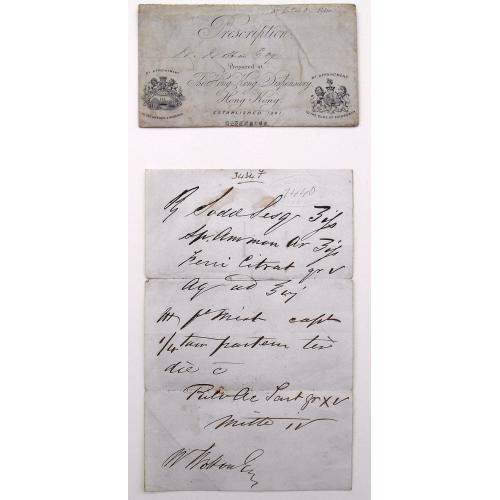 Prescription
Esq
Prepared at
The Hong Kong Dispensary
Hong Kong.
ESTABLISHED 1841
BY APPOINTMENT
BY APPOINTMENT
7440
℞ Sodæ Sesq ʒijs
Sp. Ammon Ar ʒijs
Ferri Citrat gr v
Aq ad ℥vj
ft Mist capt
1/4 tam partem ter
die c̄
Pulv Ac Tart gr XV
Mitte iv
Esq